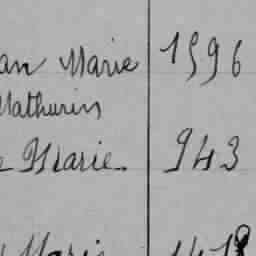 an Marie 1596
Mathurin
e Marie. 943
Marie